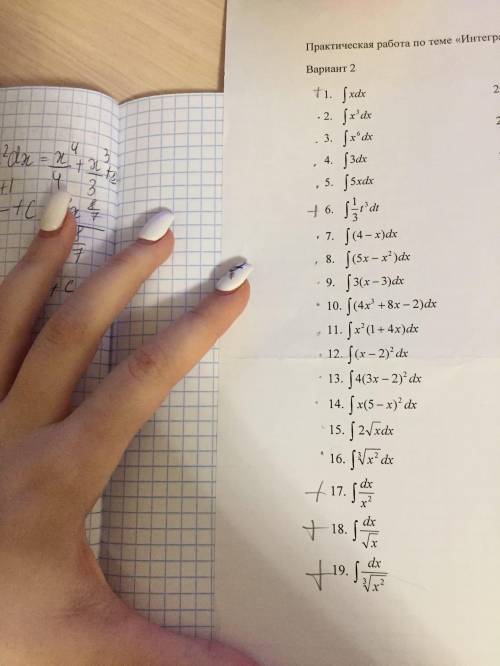 Практическая работа по теме «Интегра
Вариант 2
+ 1. ∫xdx
2. ∫x³dx
3. ∫x⁶dx
4. ∫3dx
5. ∫5xdx
+ 6. ∫\frac{1}{3}t³dt
7. ∫(4 − x)dx
8. ∫(5x − x²)dx
9. ∫3(x − 3)dx
10. ∫(4x³ + 8x − 2)dx
11. ∫x²(1 + 4x)dx
12. ∫(x − 2)²dx
13. ∫4(3x − 2)²dx
14. ∫x(5 − x)²dx
15. ∫2√xdx
16. ∫∛(x²)dx
+ 17. ∫\frac{dx}{x²}
+ 18. ∫\frac{dx}{√x}
+ 19. ∫\frac{dx}{∛(x²)}
²dx = \frac{x⁴}{4} + \frac{x³}{3} + c
+1
+C
+C